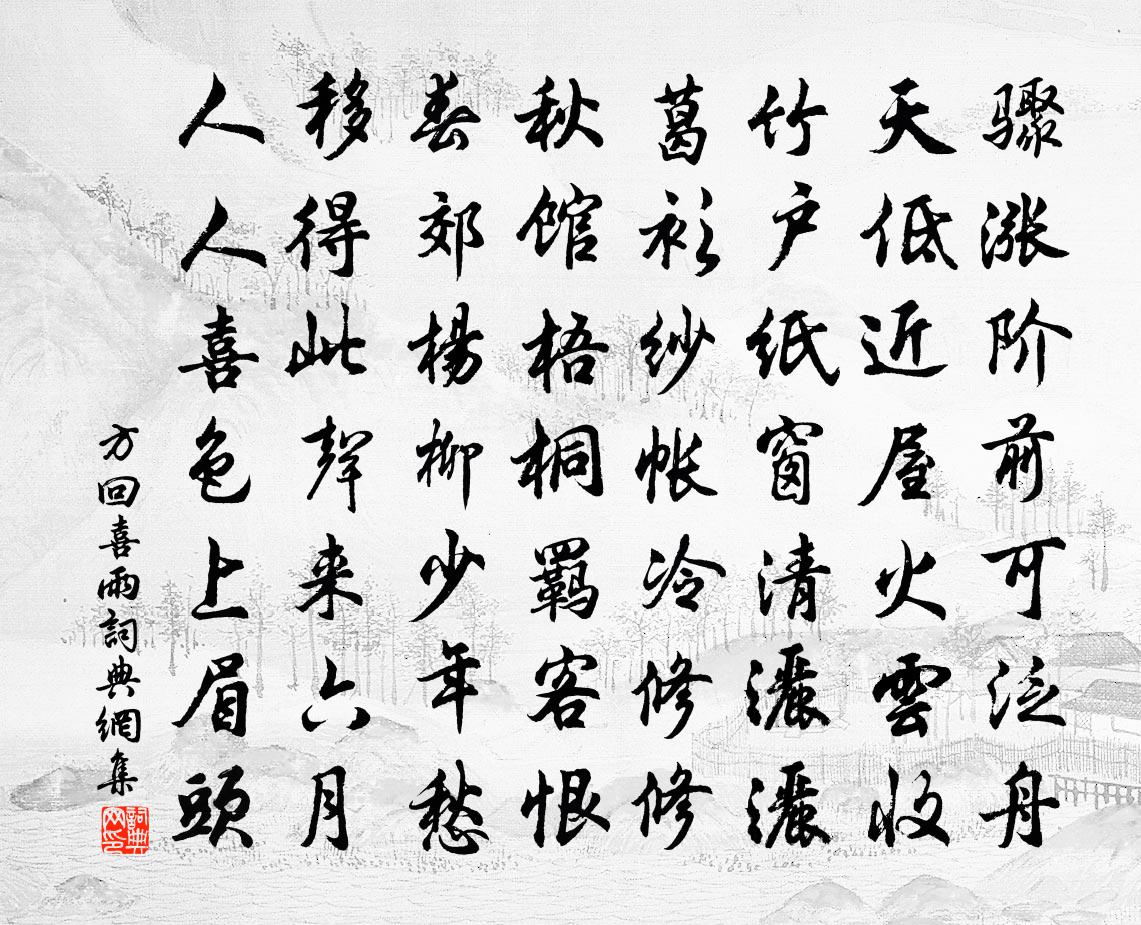 骤涨阶前可泛舟
天低近屋火雲收
竹户纸窗清灑灑
葛衫纱帐冷修修
秋馆梧桐羁客恨
春郊楊柳少年愁
移得此聲来六月
人人喜色上眉頭
方回喜雨詞典網集
詞典网印